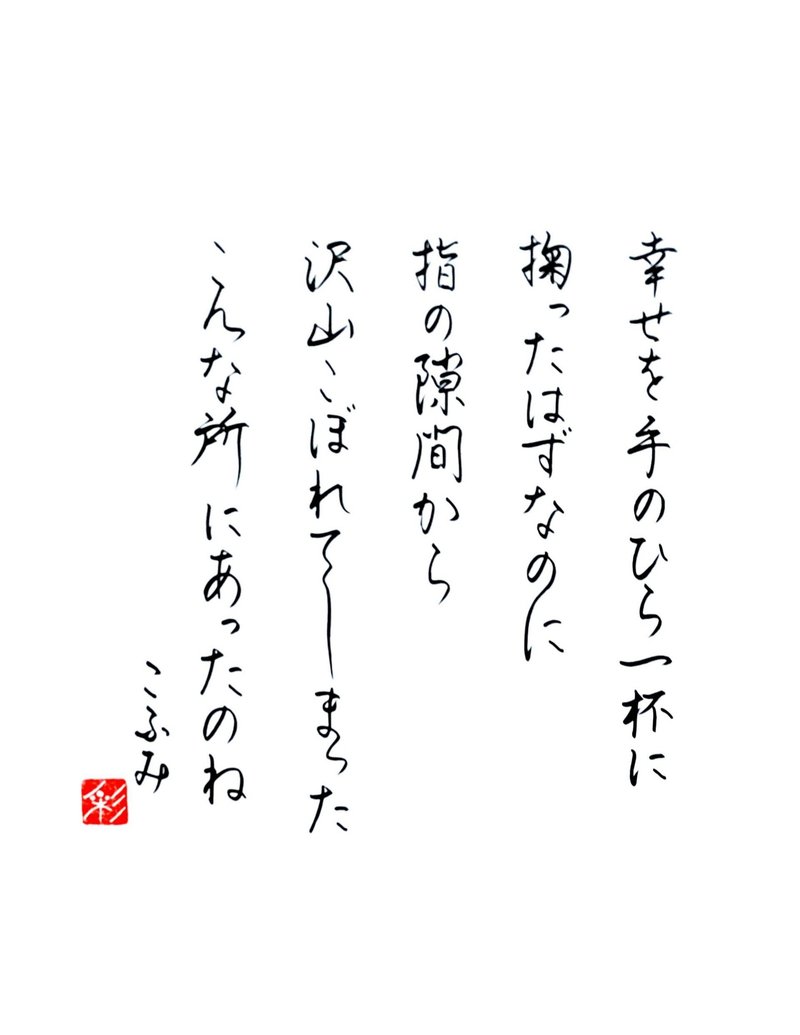 幸せを手のひら一杯に
掬ったはずなのに
指の隙間から
沢山こぼれてしまった
こんな所にあったのね
こふみ
彩